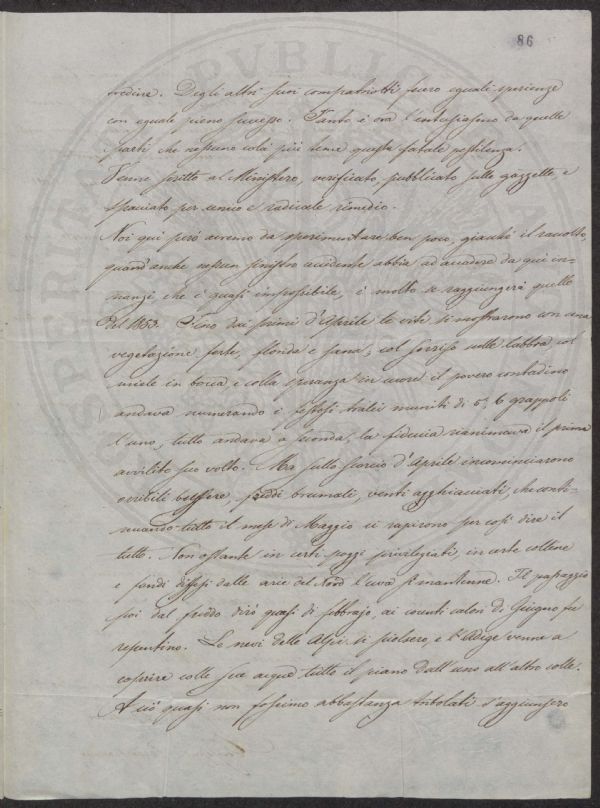 86
credire. Degli altri suoi compatriotti fecero eguali sperienze
con eguale pieno successo. Tanto è ora l'entusiasmo da quelle
parti che nessuno colà più teme questa fatale pestilenza.
Venne scritto al Ministero, verificato, pubblicato sulle gazzette, e
spacciato per unico e radicale rimedio.
Noi qui però avremo da sperimentare ben poco, giacchè il raccolto,
quand'anche nessun sinistro accidente abbia ad accadere da qui in-
nanzi che è quasi impossibile, è molto se raggiungerà quello
del 1853. Fino dai primi d'Aprile le viti si mostrarono con una
vegetazione forte, florida e sana; col sorriso sulle labbra col
miele in bocca e colla speranza in cuore il povero contadino
andava numerando i festosi tralci muniti di 5, 6 grappoli
l'uno, tutto andava a seconda, la fiducia rianimava il prima
avvilito suo volto. Ma sullo scorcio d'Aprile incominciarono
orribili buffere, freddi brumali, venti agghiacciati, che conti-
nuando tutto il mese di Maggio ci rapirono per così dire il
tutto. Non ostante in certi poggi privilegiati in certe colline
e fondi difesi dalle arie del Nord l'uva si mantenne. Il passaggio
poi dal freddo dirò quasi di febbrajo, ai cocenti calori di Giugno fu
repentino. Le nevi delle Alpi si sciolsero, e l'Adige venne a
coprire colle sue acque tutto il piano dall'uno all'altro colle.
A ciò quasi non fossimo abbastanza tribolati s'aggiunsero